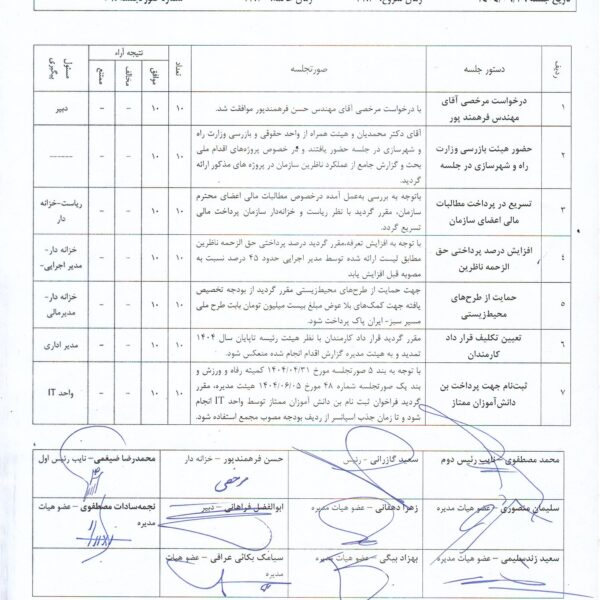 ردیف
دستور جلسه
صورتجلسه
تعداد
نتیجه آراء
موافق
مخالف
ممتنع
مسئول پیگیری
۱
درخواست مرخصی آقای
مهندس فرهمند پور
با درخواست مرخصی آقای مهندس حسن فرهمندپور موافقت شد.
۱۰
۱۰
-
-
دبیر
۲
حضور هیئت بازرسی وزارت
راه و شهرسازی در جلسه
آقای دکتر محمدیان و هیئت همراه از واحد حقوقی و بازرسی وزارت راه
و شهرسازی در جلسه حضور یافتند و در خصوص پروژه‌های اقدام ملی
بحث و گزارش جامع از عملکرد ناظرین سازمان در پروژه های مذکور ارائه
گردید.
۱۰
۱۰
-
-
------
۳
تسریع در پرداخت مطالبات
مالی اعضای سازمان
باتوجه به بررسی به‌عمل آمده درخصوص مطالبات مالی اعضای محترم
سازمان، مقرر گردید با نظر ریاست و خزانه‌دار سازمان پرداخت مالی
تسریع گردد.
۱۰
۱۰
-
-
ریاست-خزانه
دار
۴
افزایش درصد پرداختی حق
الزحمه ناظرین
با توجه به افزایش تعرفه،مقرر گردید درصد پرداختی حق الزحمه ناظرین
مطابق لیست ارائه شده توسط مدیر اجرایی حدود ۴۵ درصد نسبت به
مصوبه قبل افزایش یابد
۱۰
۱۰
-
-
خزانه دار-
مدیر اجرایی-
۵
حمایت از طرح‌های
محیط‌زیستی
جهت حمایت از طرح‌های محیط‌زیستی مقرر گردید از بودجه تخصیص
یافته جهت کمک‌های بلا عوض مبلغ بیست میلیون تومان بابت طرح ملی
مسیر سبز- ایران پاک پرداخت شود.
۱۰
۱۰
-
-
خزانه دار-
مدیرمالی
۶
تعیین تکلیف قرار داد
کارمندان
مقرر گردید قرار داد کارمندان با نظر هیئت رئیسه تاپایان سال ۱۴۰۴
تمدید و به هیئت مدیره گزارش اقدام انجام شده منعکس شود.
۱۰
۱۰
-
-
مدیر اداری
۷
ثبت‌نام جهت پرداخت بن
دانش‌آموزان ممتاز
با توجه به بند ۵ صورتجلسه مورخ ۱۴۰۴/۰۴/۳۱ کمیته رفاه و ورزش و
بند یک صورتجلسه شماره ۴۸ مورخ ۱۴۰۴/۰۶/۰۵ هیئت مدیره، مقرر
گردید فراخوان ثبت نام بن دانش آموزان ممتاز توسط واحد IT انجام
شود و تا زمان جذب اسپانسر از ردیف بودجه مصوب مجمع استفاده شود.
۱۰
۱۰
-
-
واحد IT
محمد مصطفوی – نایب رئیس دوم
سعید گازرانی – رئیس
حسن فرهمندپور – خزانه دار
محمدرضا ضیغمی – نایب رئیس اول
مرخصی
سلیمان منصوری – عضو هیات مدیره
زهرا دهقانی – عضو هیات مدیره
ابوالفضل فراهانی – دبیر
نجمه‌سادات مصطفوی – عضو هیات
مدیره
سعید زندسلیمی – عضو هیات مدیره
بهزاد بیگی – عضو هیات مدیره
سیامک بکائی عراقی – عضو هیات
مدیره